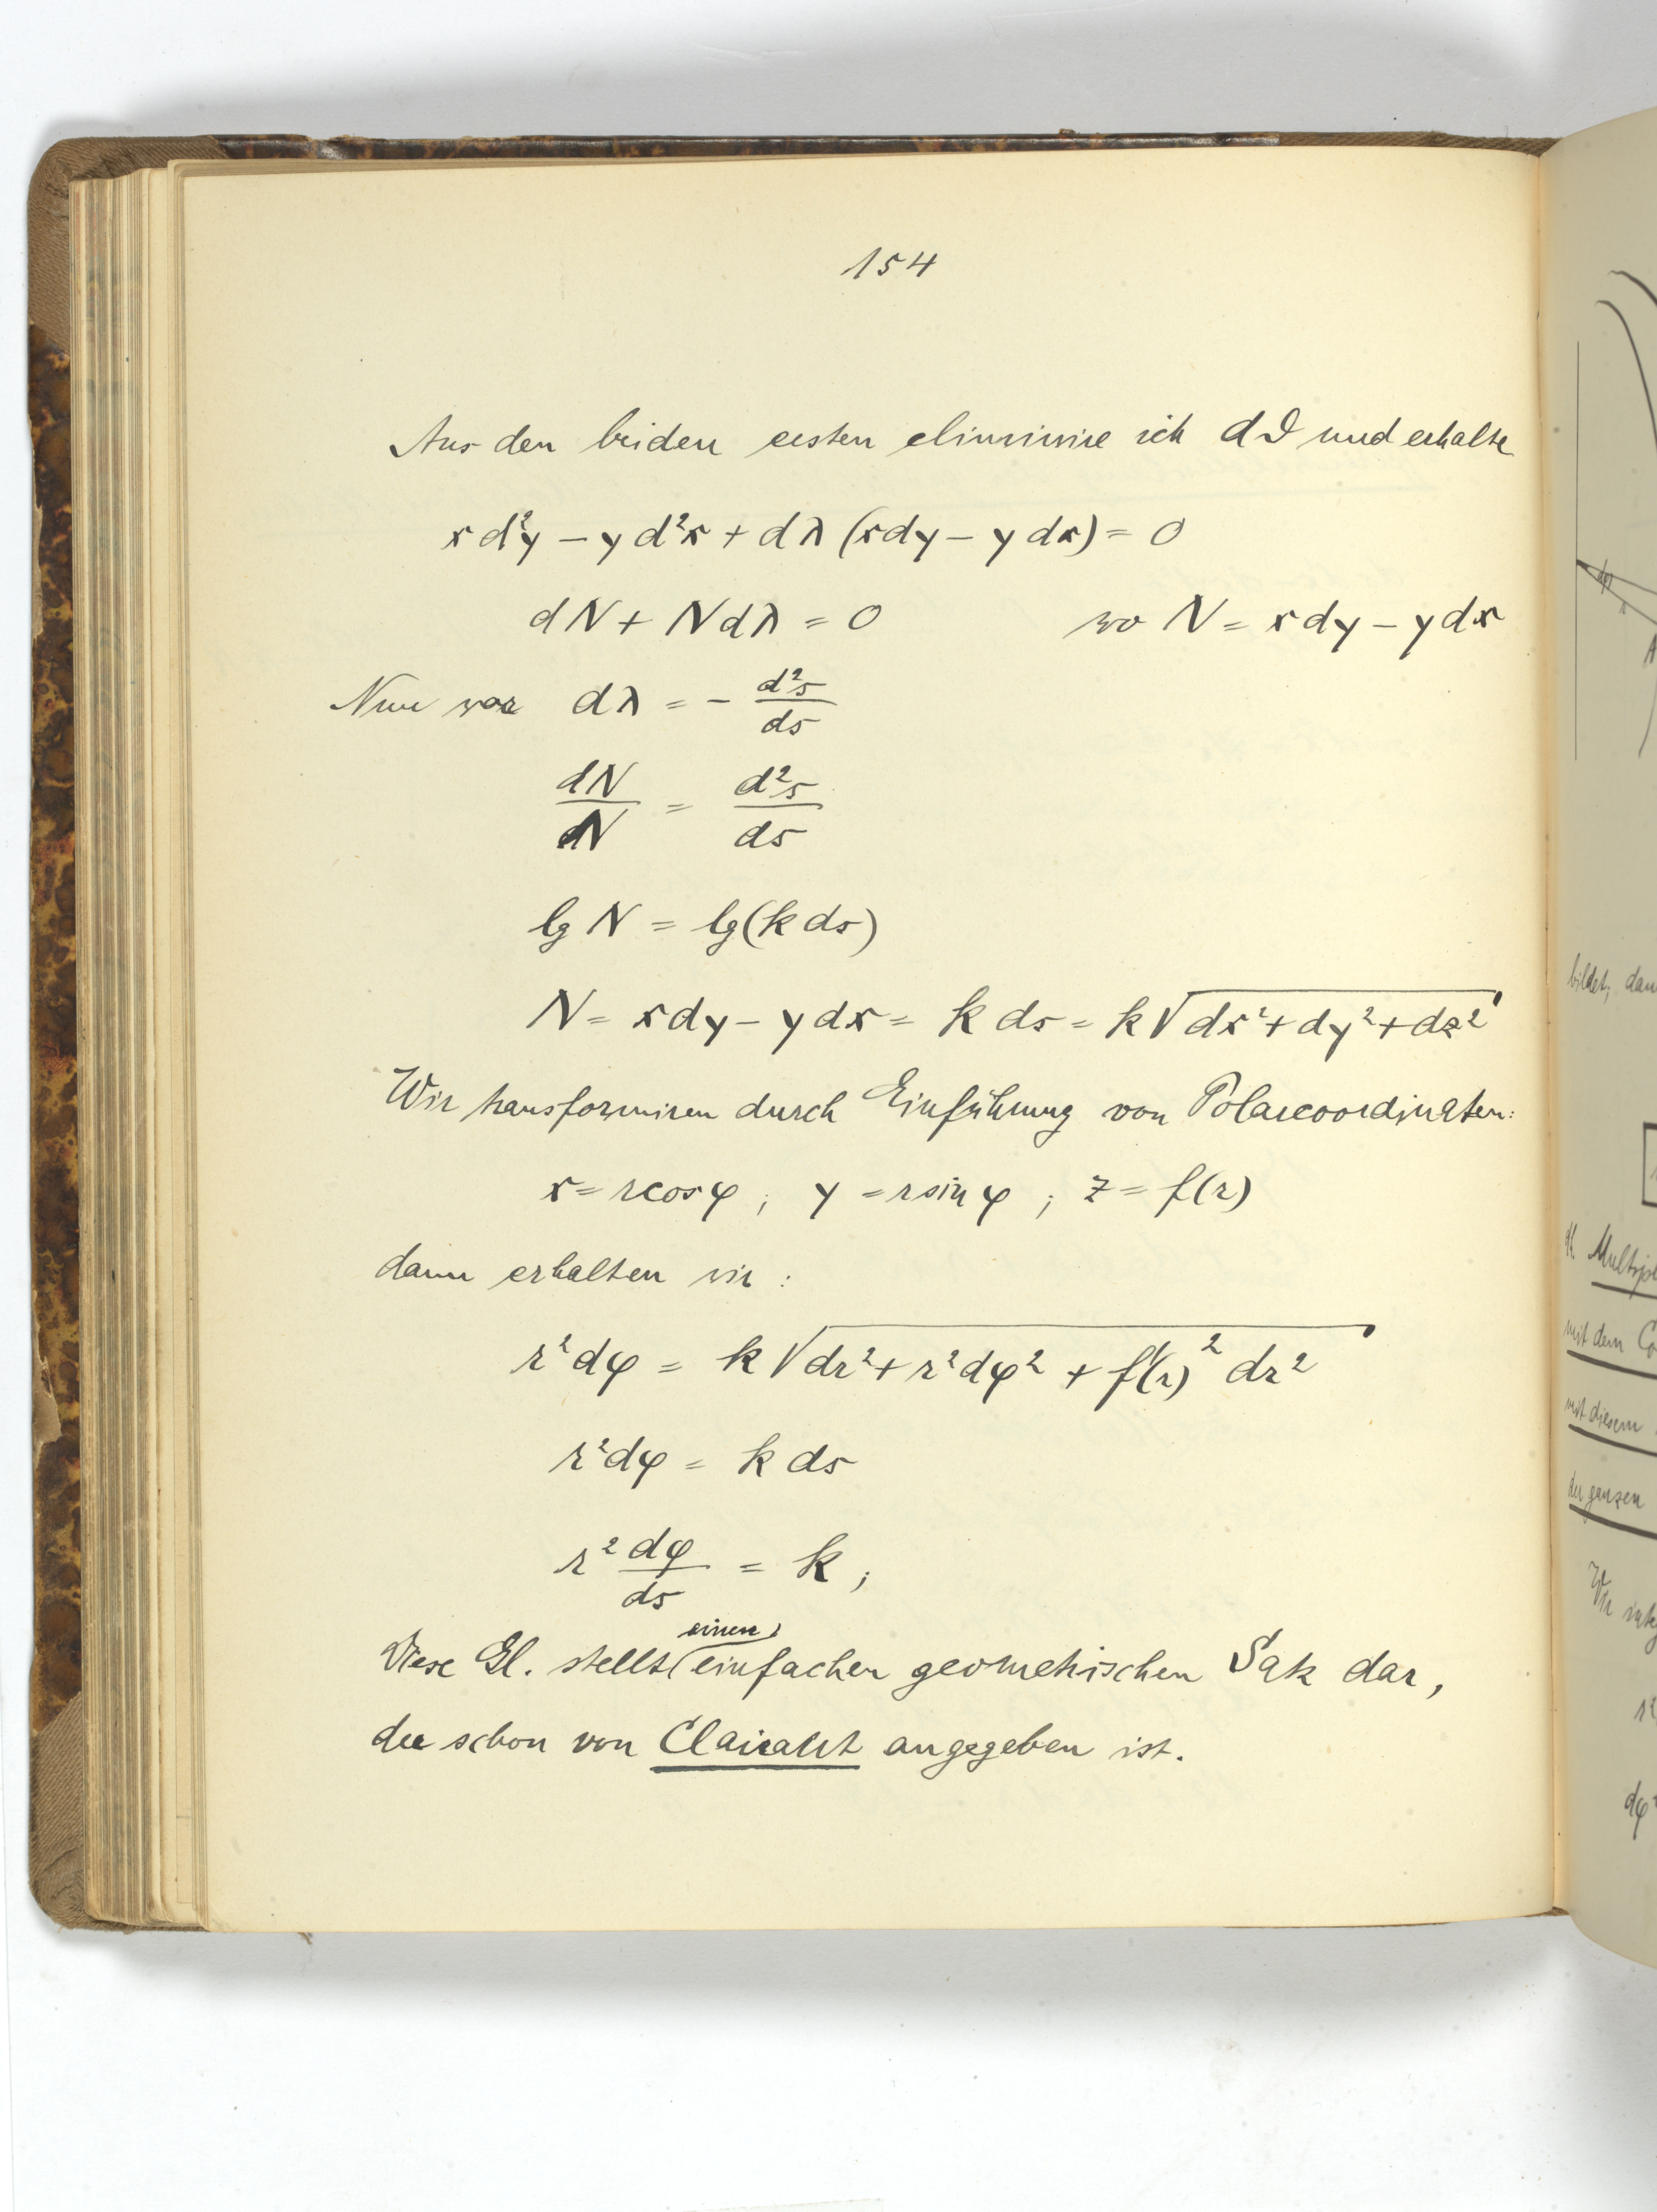 154
Aus den beiden ersten eliminire ich dϑ und erhalte
x d²y − y d²x + dλ (x dy − y dx) = 0
dN + N dλ = 0 wo N = x dy − y dx
Nun war dλ = − d²s/ds
dN/N = d²s/ds
lg N = lg(k ds)
N = x dy − y dx = k ds = k √(dx² + dy² + dz²)
Wir transformiren durch Einführung von Polarcoordinaten:
x = r cos φ ; y = r sin φ ; z = f(r)
dann erhalten wir :
r² dφ = k √(dr² + r² dφ² + f'(r)² dr²)
r² dφ = k ds
r² dφ/ds = k ;
Diese Gl. stellt einen einfachen geometrischen Satz dar,
der schon von Clairaut angegeben ist.
bildet, dan
Multipl
mit dem Co
mit diesem
der ganzen
Wir
dφ²